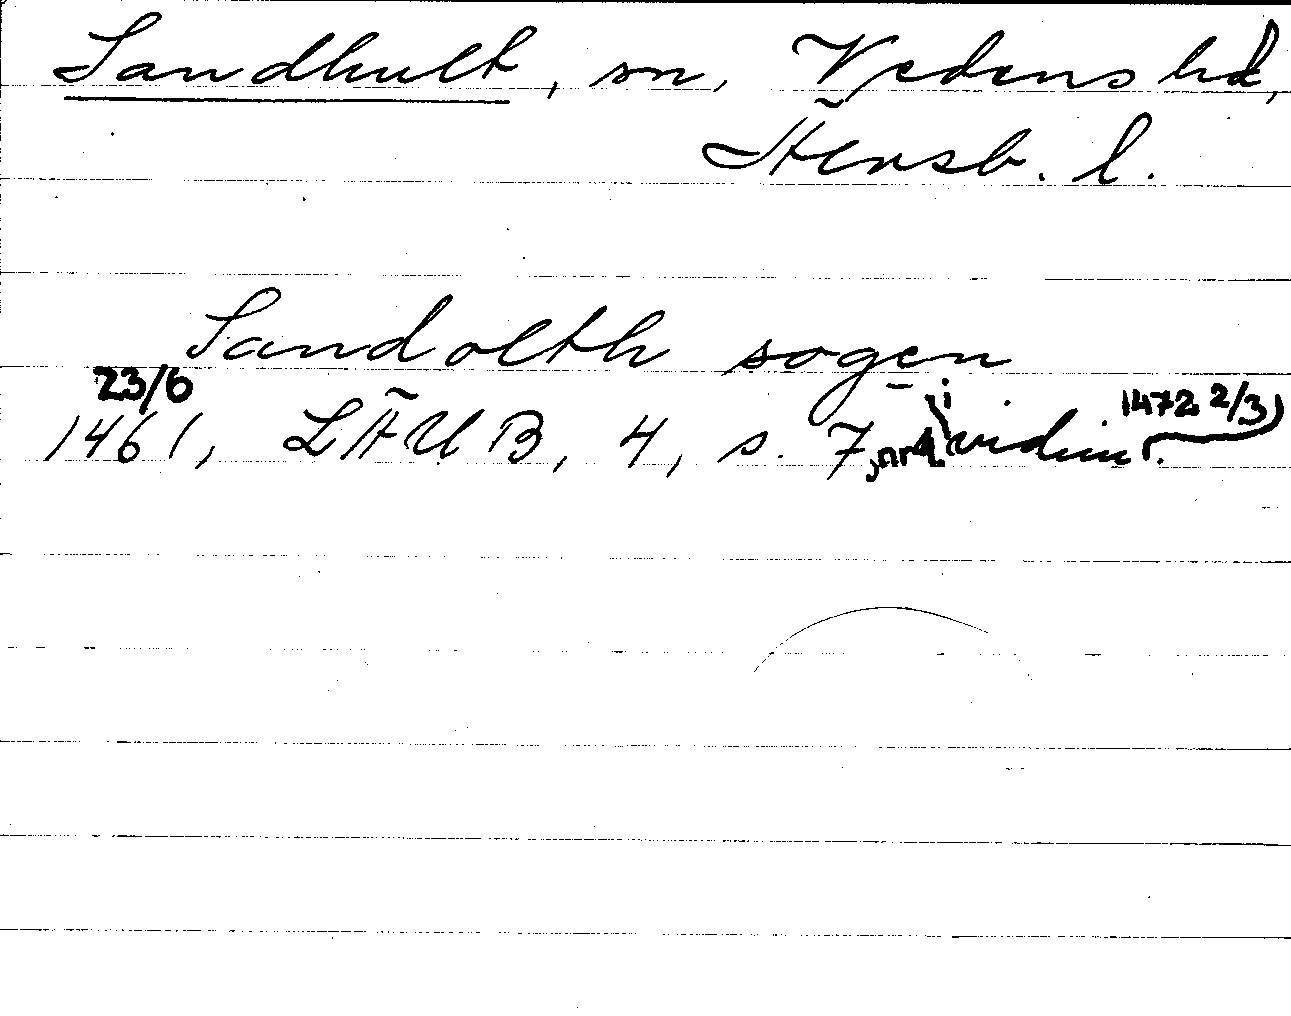 Sandhult, sn, Vedens hd,
Älvsb. l.
Sandolth sogen
23/6
1461, LÄUB, 4, s. 7, nr 4 i vidim. 1472 2/3